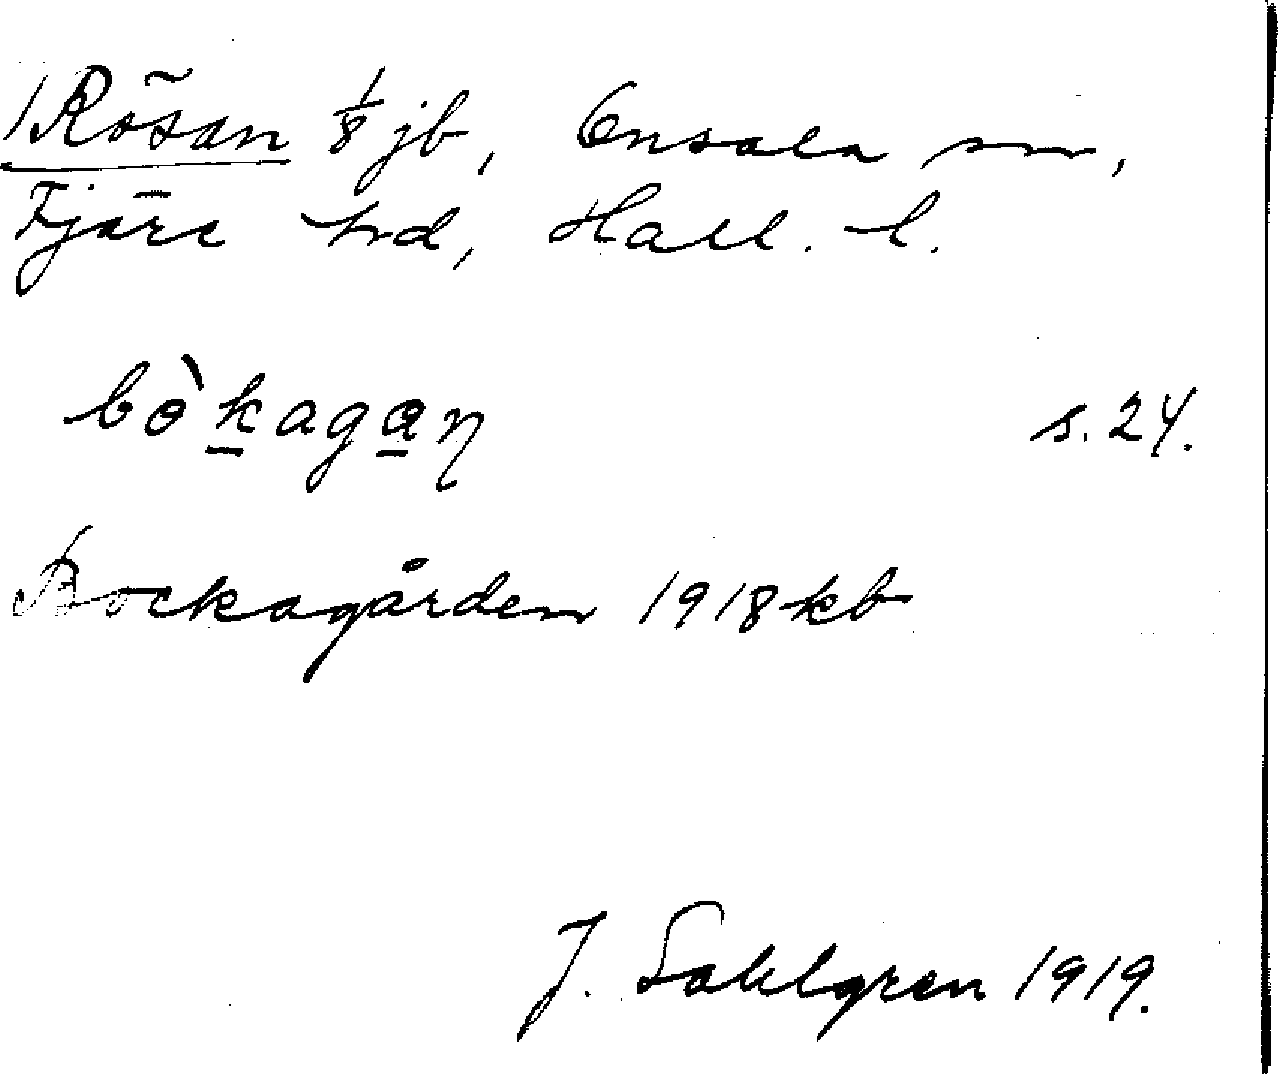 Rösan 1/8 jb, Onsala sn,
Fjäre hd, Hall. l.
bòkagaŋ s. 24.
Bockagården 1918 kb
J. Sahlgren 1919.